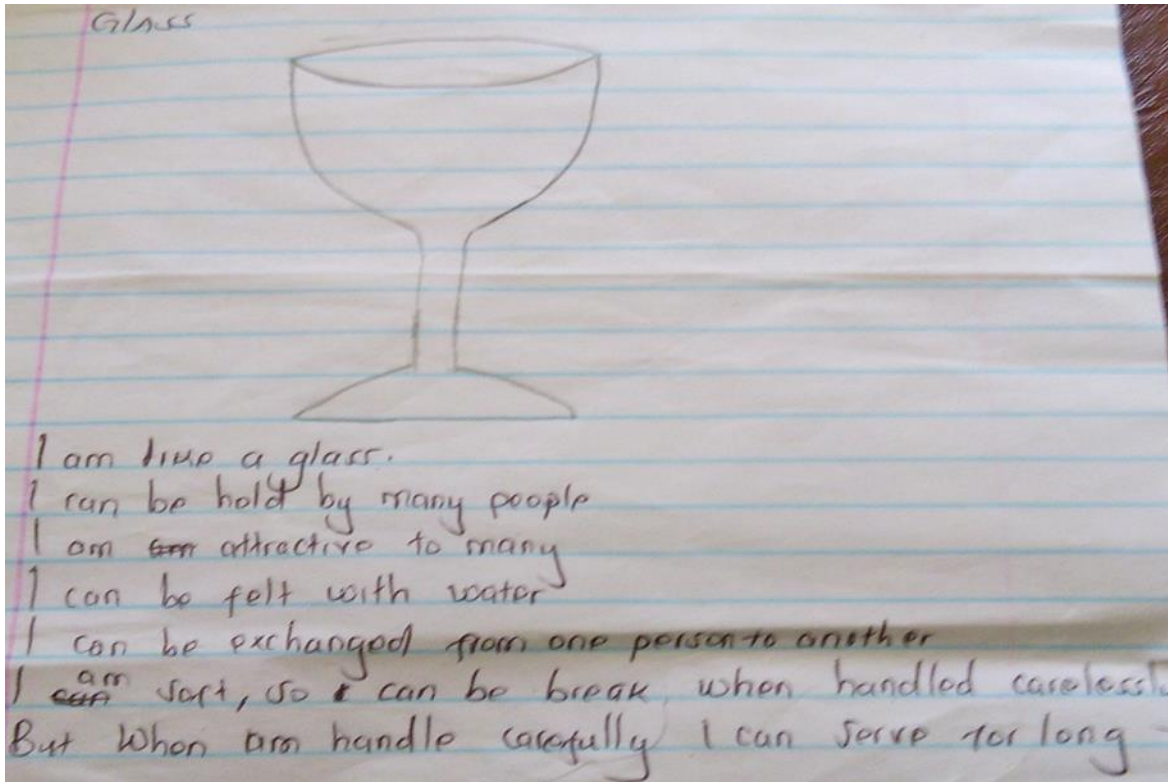 Glass
I am like a glass.
I can be hold by many people
I am attractive to many
I can be felt with water
I can be exchanged from one person to another
I am soft, so I can be break when handled carelessl
But When am handle carefully I can serve for long